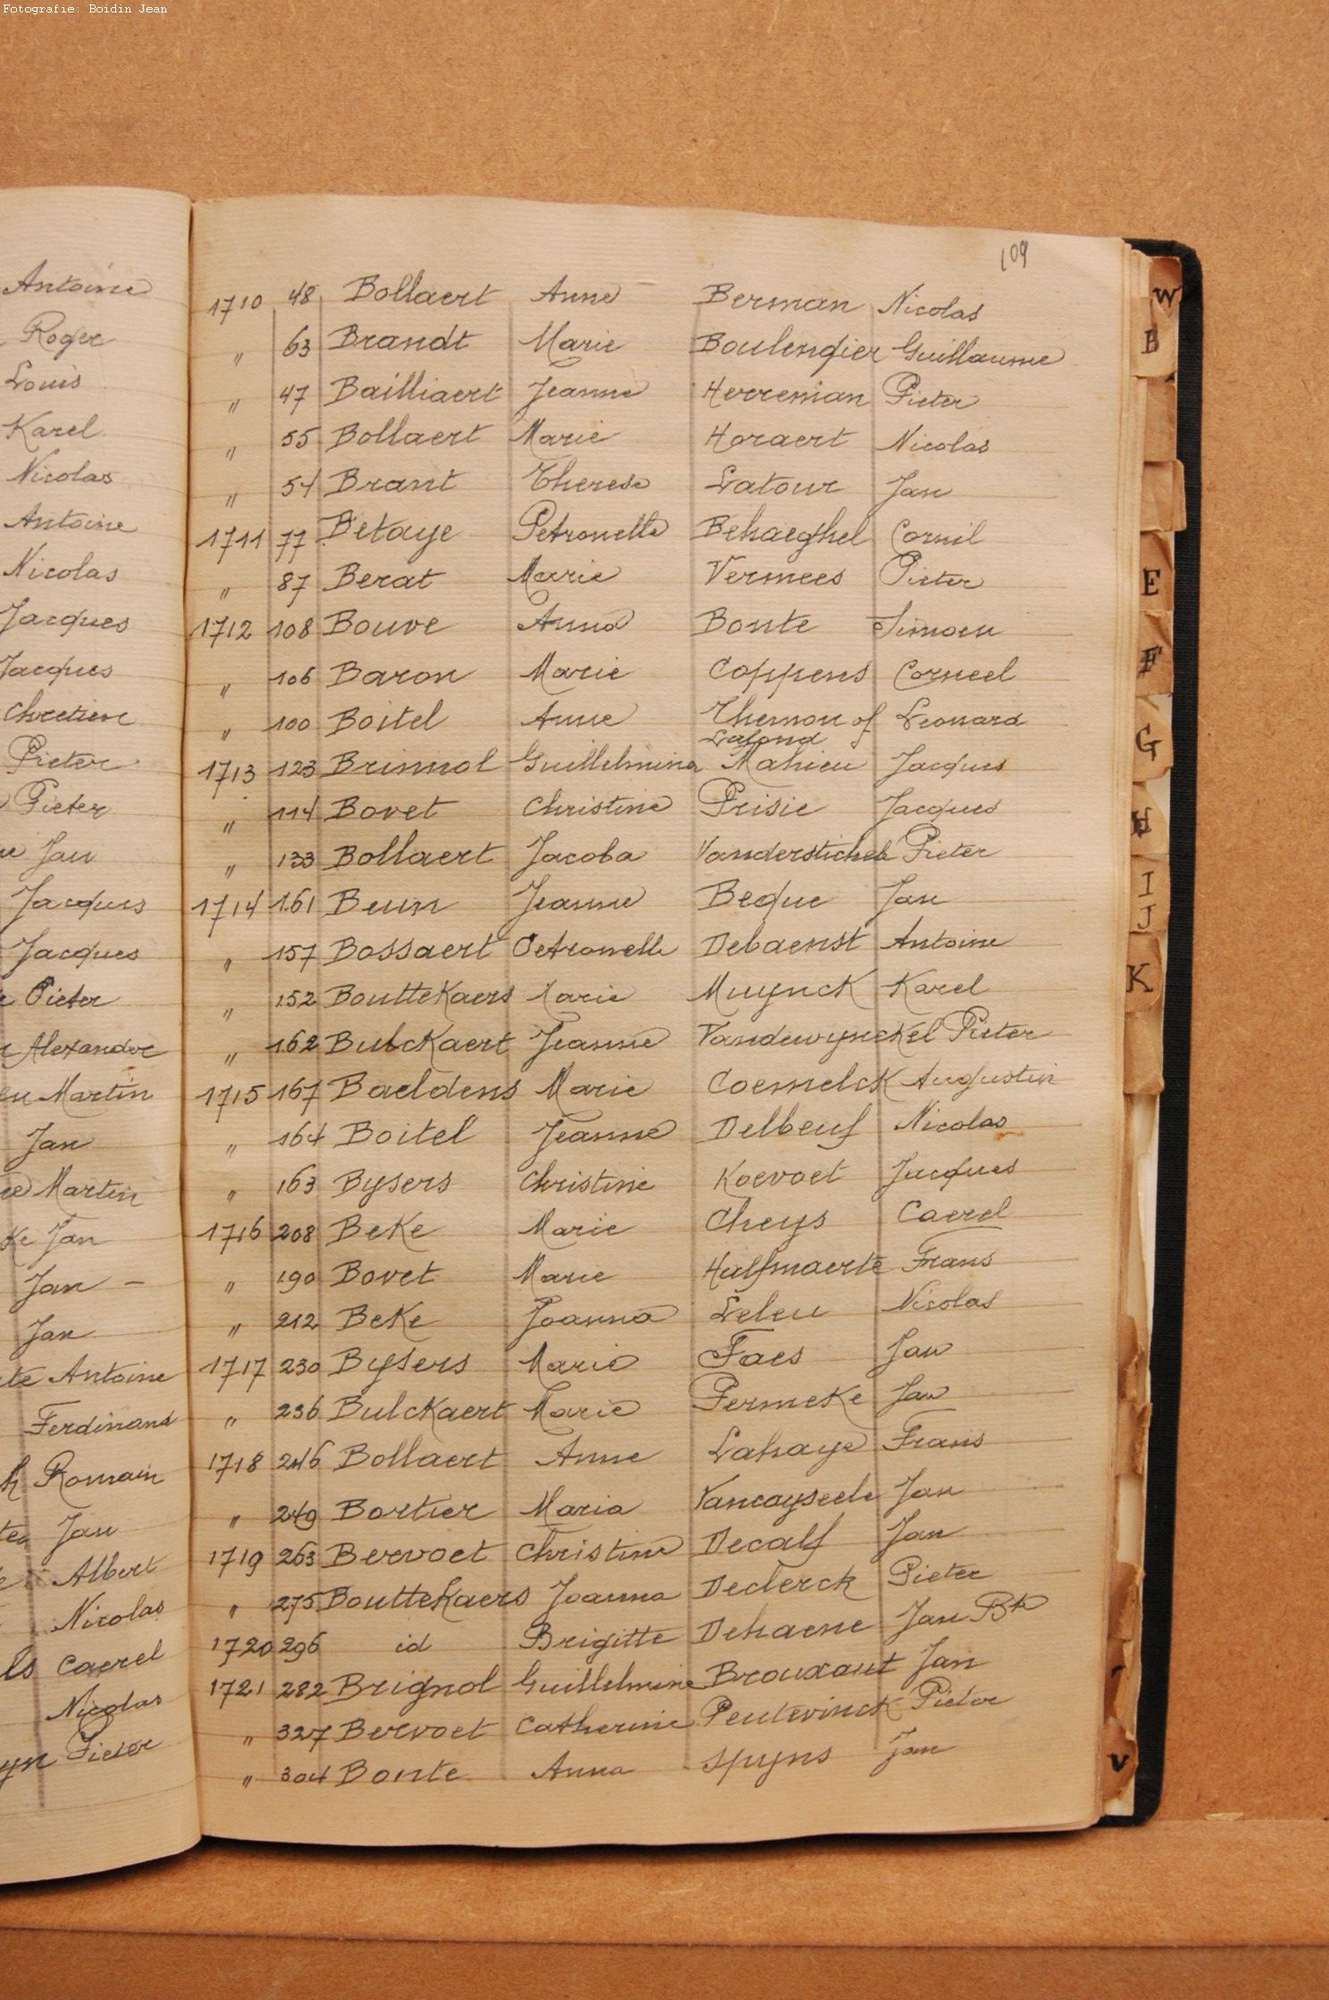 Fotografie: Boidin Jean
109
Antoine
Roger
Louis
Karel
Nicolas
Antoine
Nicolas
Jacques
Jacques
Chretien
Pieter
Pieter
Jan
Jacques
Jacques
Pieter
Alexandre
Martin
Jan
Martin
Jan
Jan –
Jan
Antoine
Ferdinand
Romain
Jan
Albert
Nicolas
Caerel
Nicolas
Pieter
1710 48 Bollaert Anne Berman Nicolas
" 63 Brandt Marie Boulengier Guillaume
" 47 Bailliaert Jeanne Herreman Pieter
" 55 Bollaert Marie Horaert Nicolas
" 54 Brant Therese Latour Jan
1711 77 Betaye Petronelle Behaeghel Cornil
" 87 Berat Marie Vermees Pieter
1712 108 Bouve Anna Bonte Simoen
" 106 Baron Marie Coppens Corneel
" 100 Boitel Anne Themon of Leonard
Lafond
1713 123 Brinnol Guillelmina Mahieu Jacques
" 114 Bovet Christine Prisie Jacques
" 133 Bollaert Jacoba Vanderstichele Pieter
1714 161 Beun Jeanne Beque Jan
" 157 Bossaert Petronelle Debaenst Antoine
" 152 Bouttekaers Marie Muynck Karel
" 162 Bulckaert Jeanne Vandewynckel Pieter
1715 167 Baeldens Marie Coemelck Augustin
" 164 Boitel Jeanne Delbeuf Nicolas
" 163 Bysers Christine Koevoet Jacques
1716 208 Beke Marie Cheys Caerel
" 190 Bovet Marie Halfmaerte Frans
" 212 Beke Joanna Leleu Nicolas
1717 230 Bysers Marie Faes Jan
" 236 Bulckaert Marie Permeke Jan
1718 246 Bollaert Anne Lahaye Frans
" 249 Bortier Maria Vancayseele Jan
1719 263 Bervoet Christine Decalf Jan
" 275 Bouttekaers Joanna Declerck Pieter
1720 296 id Brigitte Dehaene Jan Bte
1721 282 Brignol Guillelmine Brouxaut Jan
" 327 Bervoet Catherine Peutevinck Pieter
" 304 Bonte Anna Spyns Jan
W
B
E
F
G
H
I
J
K
V